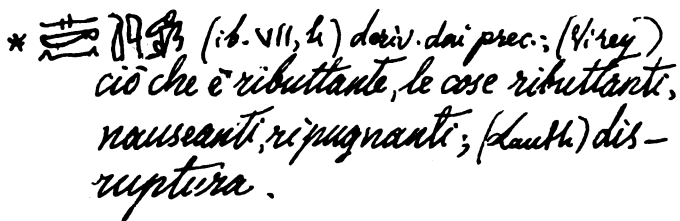 * (ib. VII, h) deriv. dai prec.; (Virey)
ciò che è ributtante, le cose ributtanti,
nauseanti, ripugnanti; (Lauth) dis-
ruptura.